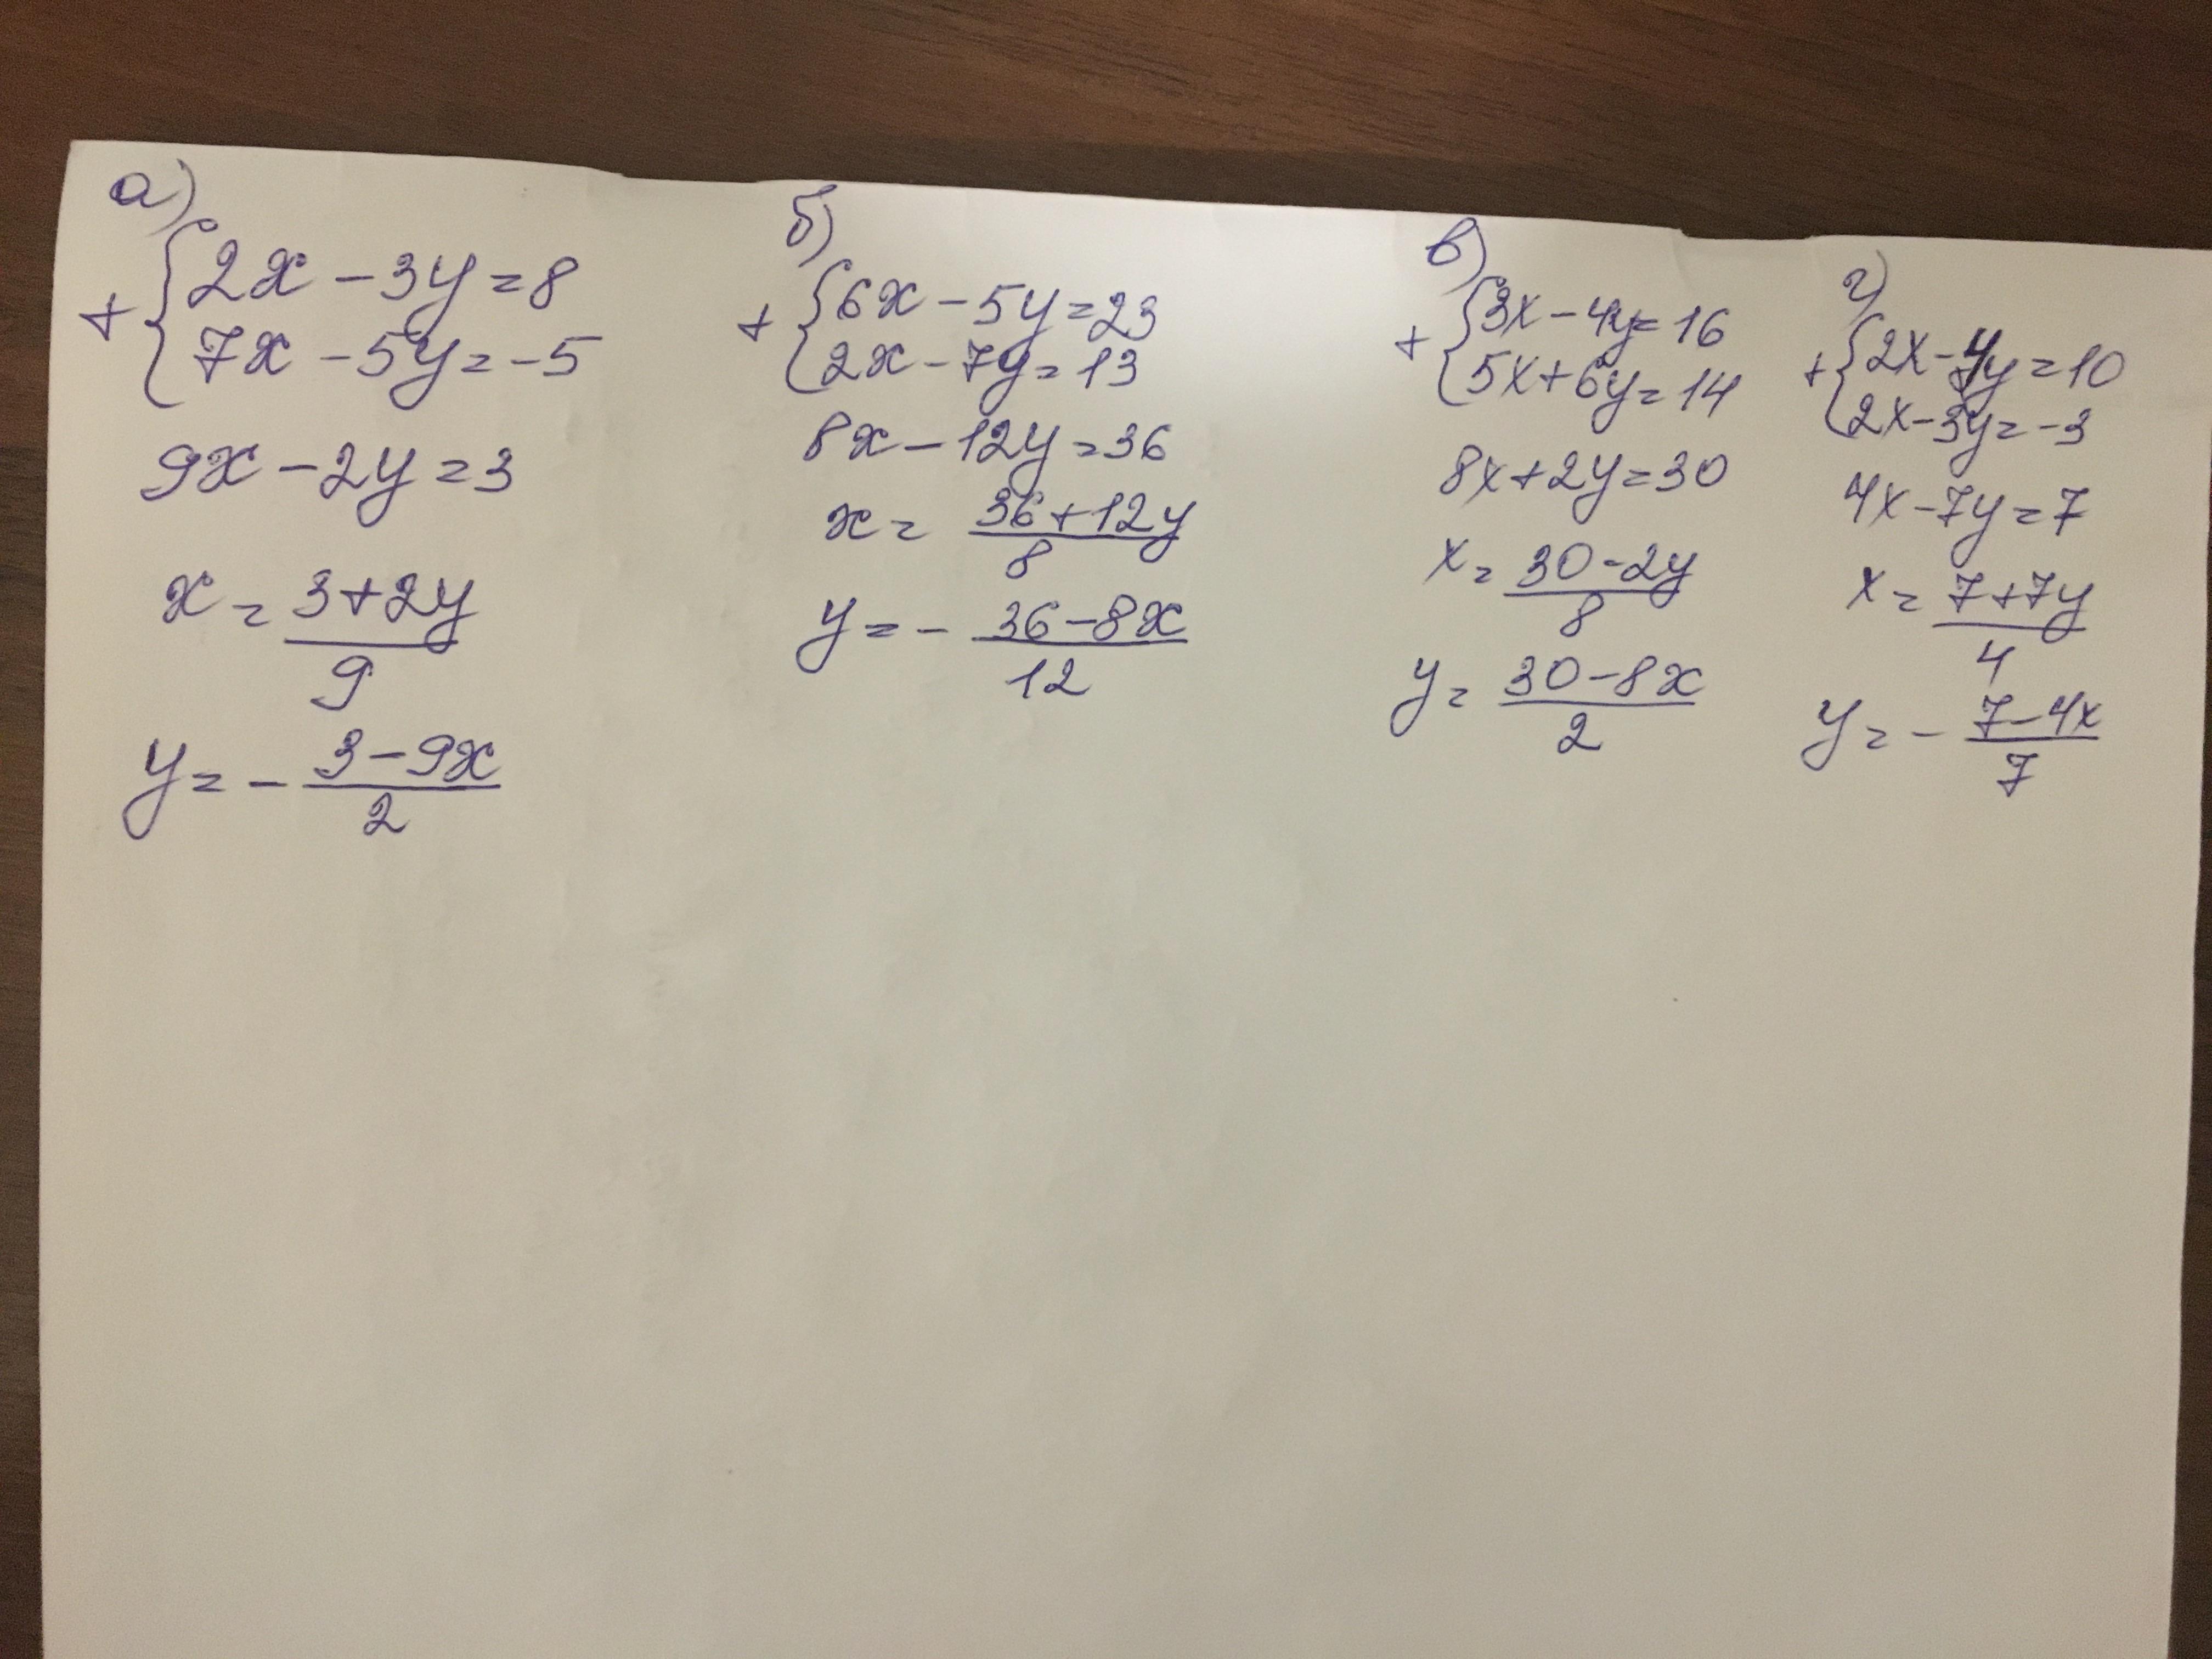 а)
2x - 3y = 8
+
7x - 5y = -5
9x - 2y = 3
x = 3+2y
9
y = - 3-9x
2
б)
6x - 5y = 23
+
2x - 7y = 13
8x - 12y = 36
x = 36+12y
8
y = - 36-8x
12
в)
3x - 4y = 16
+
5x + 6y = 14
8x + 2y = 30
x = 30-2y
8
y = 30-8x
2
г)
2x - 4y = 10
+
2x - 3y = -3
4x - 7y = 7
x = 7+7y
4
y = - 7-4x
7